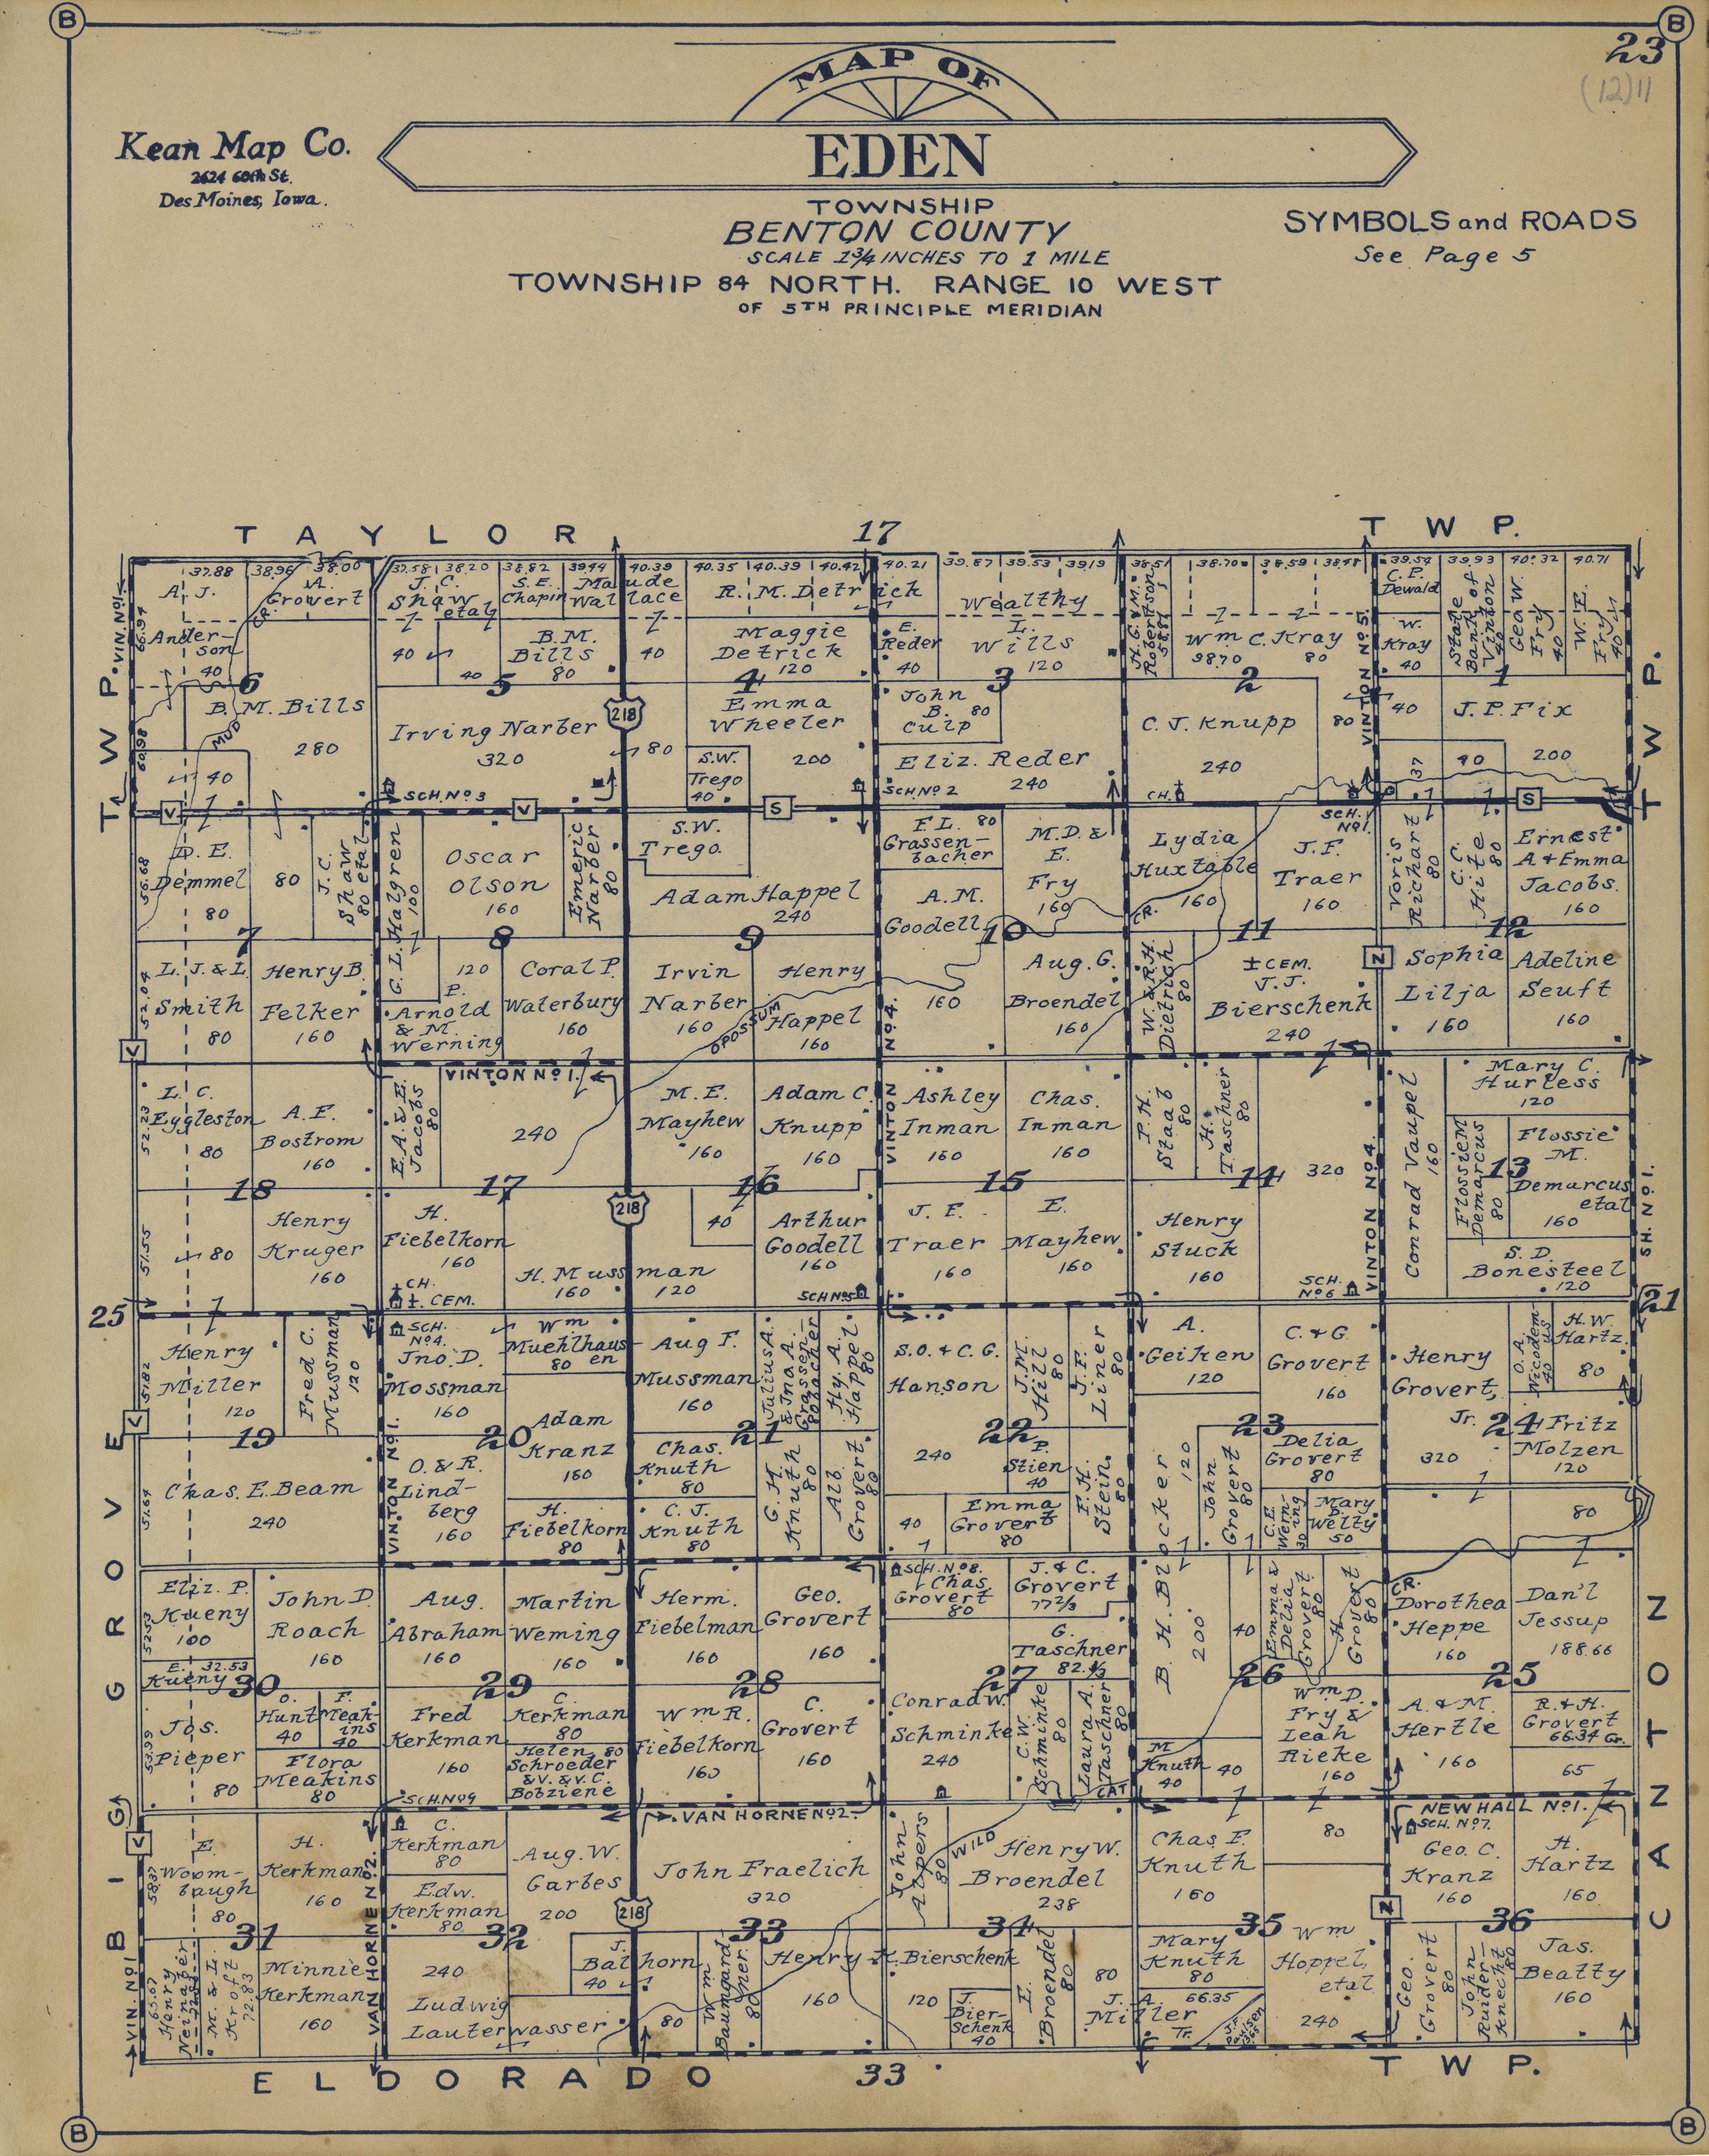 B
B
23
(12)11
MAP OF
EDEN
Kean Map Co.
2624 60th St.
Des Moines, Iowa.
TOWNSHIP
BENTON COUNTY
SCALE 1¾ INCHES TO 1 MILE
TOWNSHIP 84 NORTH. RANGE 10 WEST
OF 5TH PRINCIPLE MERIDIAN
SYMBOLS and ROADS
See Page 5
TAYLOR
17
TWP.
37.88 38.96 38.00 37.58 38.20 38.82 39.44 40.39 40.35 40.39 40.42 40.21 39.87 39.53 39.19 38.51 38.70 38.59 38.48 39.54 39.93 40.32 40.71
A. J.
Anderson
40
66.94
A.
Grovert
CR.
J. C.
Shaw
etal
S. E.
Chapin
Maude
Wallace
R. M. Detrick
Wealthy
L.
Wills
120
H. G. & M.
Robertson
Wm C. Kray
38.70
80
C. P.
Dewald
W.
Kray
40
State
Bank of
Vinton
40
Geo W.
Fry
40
W. E.
Fry
40
40
40
B. M.
Bills
80
40
Maggie
Detrick
120
E.
Reder
40
6
5
4
3
2
1
B. M. Bills
280
MUD
60.98
40
Irving Narber
320
218
80
Emma
Wheeler
200
S.W.
Trego
40
John
B.
Culp
80
Eliz. Reder
240
C. J. Knupp
240
80
40
J. P. Fix
200
40
137
SCH. No 3
V
V
S
SCH No 2
CH.
SCH.
No 1.
S
TWP.
VIN. No 1
VINTON No 5
TWP.
D. E.
Demmel
80
56.68
80
J. C.
Shaw
etal
80
G. L. Halgren
100
Oscar
Olson
160
Emeric
Narber
80
S.W.
Trego.
Adam Happel
240
F. L.
Grassenbacher
80
A. M.
Goodell
160
M. D. &
E.
Fry
160
Lydia
Huxtable
160
CR.
J. F.
Traer
160
Voris
Richart
80
C. C.
Hite
80
Ernest
A & Emma
Jacobs.
160
7
8
9
10
11
12
L. J. & L.
Smith
80
52.04
Henry B.
Felker
160
120
P.
Arnold
& M.
Werning
Coral P.
Waterbury
160
Irvin
Narber
160
OPOSSUM
Henry
Happel
160
No 4.
Aug. G.
Broendel
160
W. & R. H.
Dietrich
80
CEM.
J. J.
Bierschenk
240
N
Sophia
Lilja
160
Adeline
Seuft
160
V
VINTON No 1.
L. C.
Eggleston
80
52.23
A. F.
Bostrom
160
E. A. & E.
Jacobs
80
240
M. E.
Mayhew
160
Adam C.
Knupp
160
VINTON
Ashley
Inman
160
Chas.
Inman
160
P. H.
Staab
80
H.
Taschner
80
320
VINTON No 4.
Conrad Vaupel
160
Mary C.
Hurless
120
Flossie M
Demarcus
80
Flossie
M.
Demarcus
etal
160
18
17
16
15
14
13
51.55
80
Henry
Kruger
160
H.
Fiebelkorn
160
CH.
CEM.
H. Mussman
160
120
218
40
Arthur
Goodell
160
SCH No 5
J. F.
Traer
160
E.
Mayhew
160
Henry
Stuck
160
SCH.
No 6
S. D.
Bonesteel
120
SH. No 1.
25
21
Henry
Miller
120
51.82
Fred C.
Mussman
120
SCH.
No 4.
Jno. D.
Mossman
160
Wm
Muehlhausen
80
Aug F.
Mussman
160
Julius A.
& Jno A.
Grassenbacher
80
Hy. A.
Happel
80
S. O. & C. G.
Hanson
240
J. M.
Hill
80
J. F.
Liner
80
A.
Geiken
120
C. & G.
Grovert
160
Henry
Grovert,
Jr.
320
O. A.
Nicodemus
40
H. W.
Hartz.
80
V
19
20
21
22
23
24
Chas. E. Beam
240
51.64
VINTON No 1.
O. & R.
Lindberg
160
Adam
Kranz
160
H.
Fiebelkorn
80
Chas.
Knuth
80
C. J.
Knuth
80
G. H.
Knuth
80
Alb.
Grovert
80
P.
Stien
40
40
Emma
Grovert
80
F. H.
Stein.
80
B. H. Blocker
120
200
John
Grovert
80
Delia
Grovert
80
C. E.
Werning
30
Mary
B.
Welty
50
Fritz
Molzen
120
80
BIG GROVE
Eliz. P.
Kueny
100
52.53
E. 32.53
Kueny
John D.
Roach
160
Aug.
Abraham
160
Martin
Weming
160
Herm.
Fiebelman
160
Geo.
Grovert
160
SCH. No 8.
Chas
Grovert
80
J. & C.
Grovert
77⅔
G.
Taschner
82.⅓
40
Emma &
Delia
Grovert
80
H.
Grovert
80
CR.
Dorothea
Heppe
160
Dan'l
Jessup
188.66
30
29
28
27
26
25
Jos.
Pieper
80
53.99
O.
Hunt
40
F.
Meakins
40
Flora
Meakins
80
Fred
Kerkman
160
C.
Kerkman
80
Helen
Schroeder
& V. & V. C.
Bobziene
80
Wm R.
Fiebelkorn
160
C.
Grovert
160
Conrad W.
Schminke
240
C. W.
Schminke
80
Laura A.
Taschner
80
M
Knuth
40
40
Wm D.
Fry &
Leah
Rieke
160
A. & M.
Hertle
160
R. & H.
Grovert
66.34 Gr.
65
SCH. No 9
VAN HORNE No 2.
CAT
NEWHALL No 1.
SCH. No 7.
V
E.
Woombaugh
80
58.37
H.
Kerkman
160
VAN HORNE No 2.
C.
Kerkman
80
Edw.
Kerkman
80
Aug. W.
Garbes
200
218
John Fraelich
320
John
Alpers
80
WILD
Henry W.
Broendel
238
Chas F.
Knuth
160
80
Geo. C.
Kranz
160
H.
Hartz
160
N
31
32
33
34
35
36
VIN. No 1
65.67
Henry
Neinaber
M. & L.
Kroft
72.83
Minnie
Kerkman
160
240
Ludwig
Lauterwasser
J.
Balhorn
40
80
Wm
Baumgardner.
80
Henry H. Bierschenk
160
120
J.
Bierschenk
40
E.
Broendel
80
80
J. A.
Miller
66.35
Tr.
Mary
Knuth
80
Wm
Hoppel,
etal
240
Geo.
Grovert
80
John
Ruiderknecht
80
Jas.
Beatty
160
CANTON
ELDORADO
33
TWP.
B
B